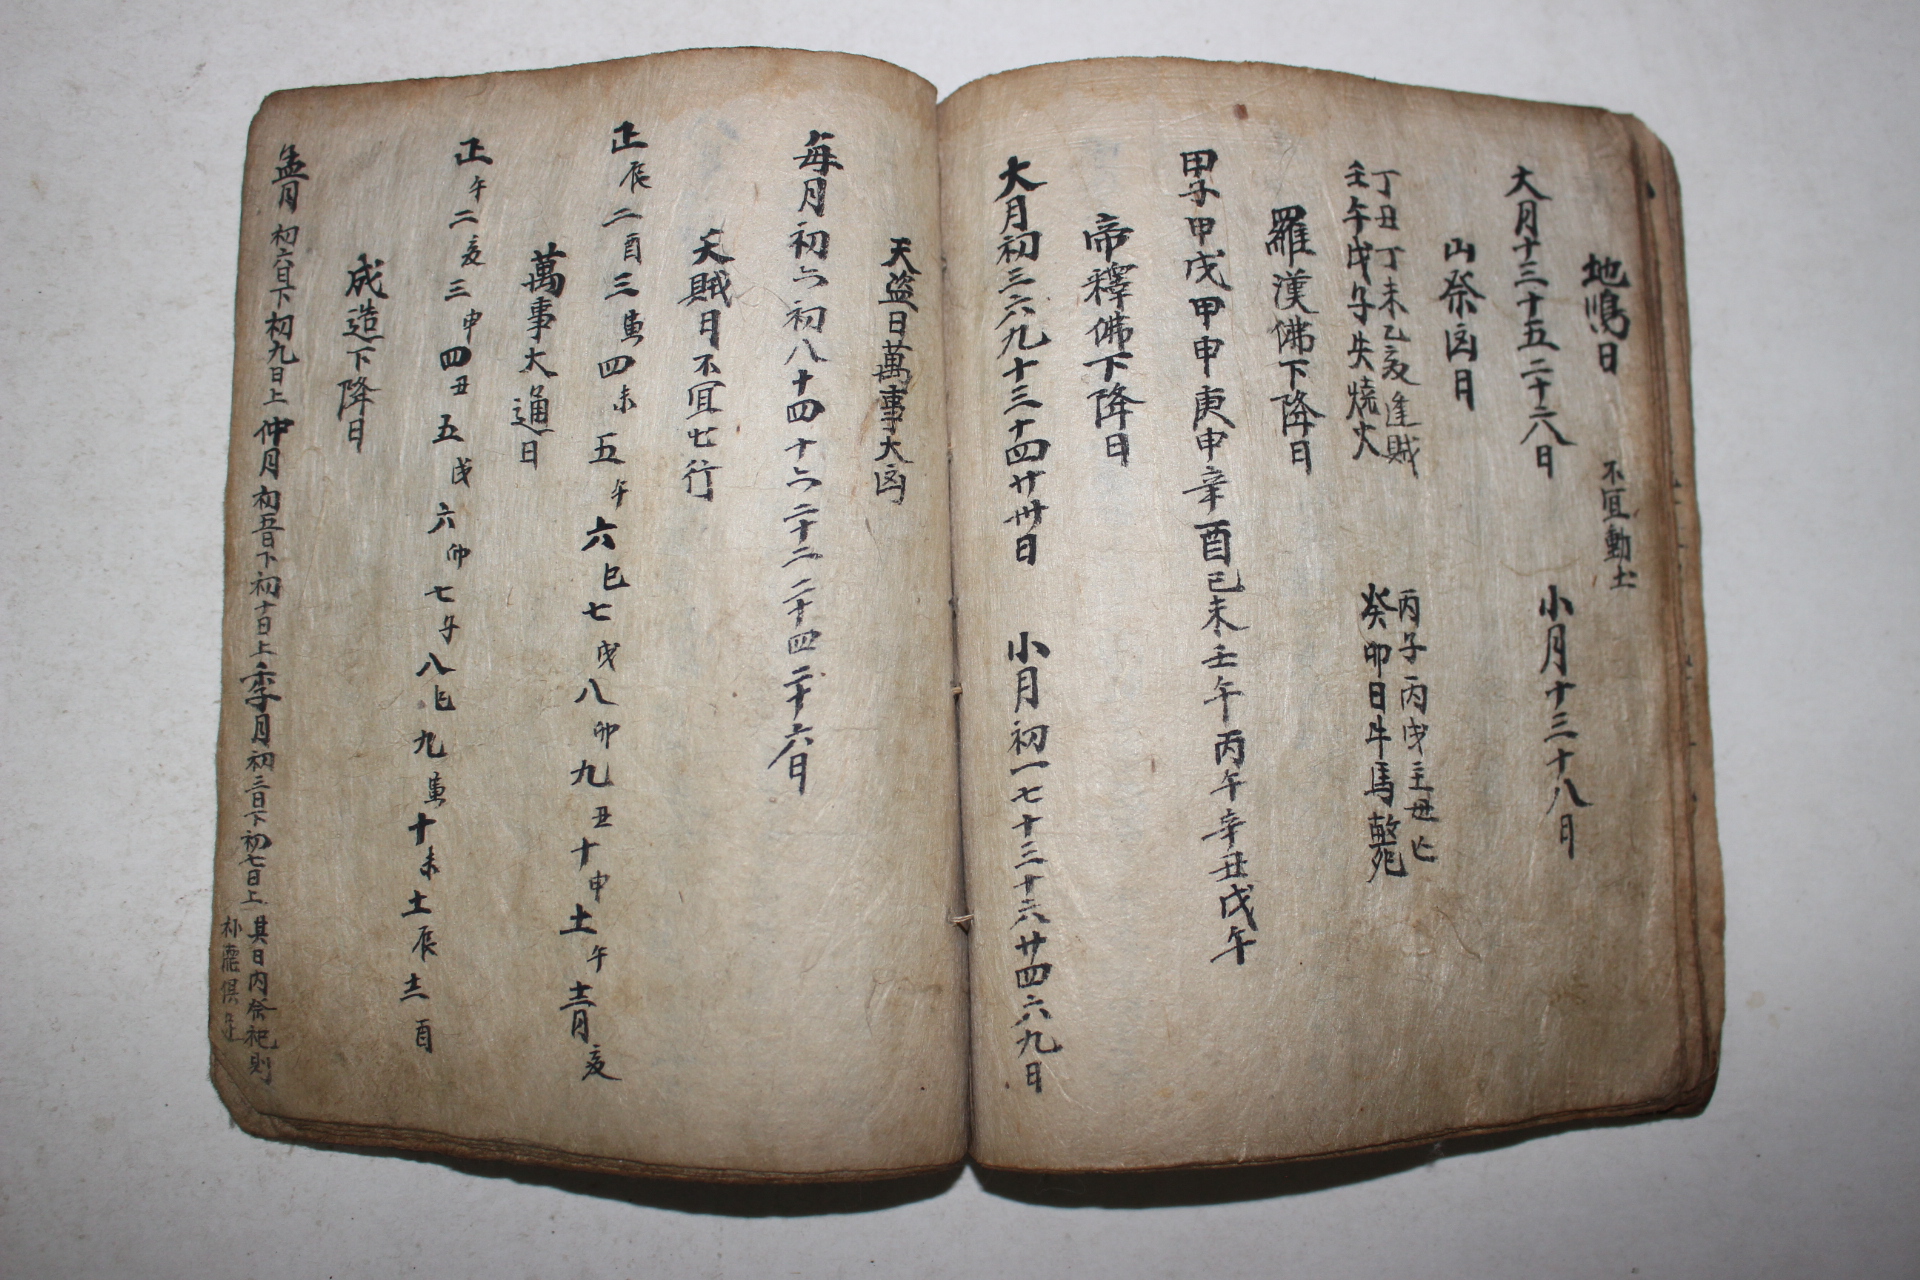 地鳴日 不宜動土
大月十三十五二十六日 小月十三十八日
山祭凶日
丁丑丁未乙亥逢賊 丙子丙戌主母亡
壬午戊子失燒火 癸卯日牛馬斃
羅漢佛下降日
甲子甲戌甲申庚申辛酉己未壬午丙午辛丑戊午
帝釋佛下降日
大月初三六九十三十四廿卅日 小月初一七十三十六廿四六九日
天盜日萬事大凶
每月初六初八十四十六二十二二十四二十六日
天賊日不宜出行
正辰二酉三寅四未五午六巳七戌八卯九丑十申十一午十二月亥
萬事大通日
正午二亥三申四丑五戌六卯七子八巳九寅十未十一辰十二酉
成造下降日
孟月初六日下初九日上仲月初五日下初十日上季月初三日下初七日上 其日內祭祀則